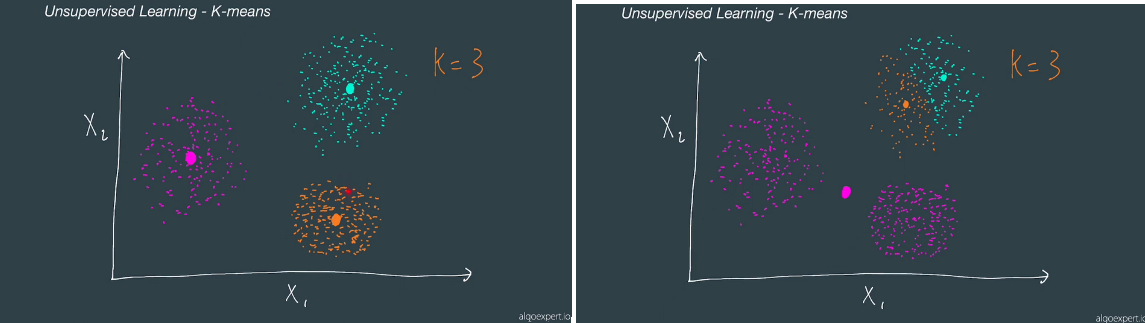 Unsupervised Learning - K-means
K = 3
X₂
X₁
algoexpert.io
Unsupervised Learning - K-means
K = 3
X₂
X₁
algoexpert.io